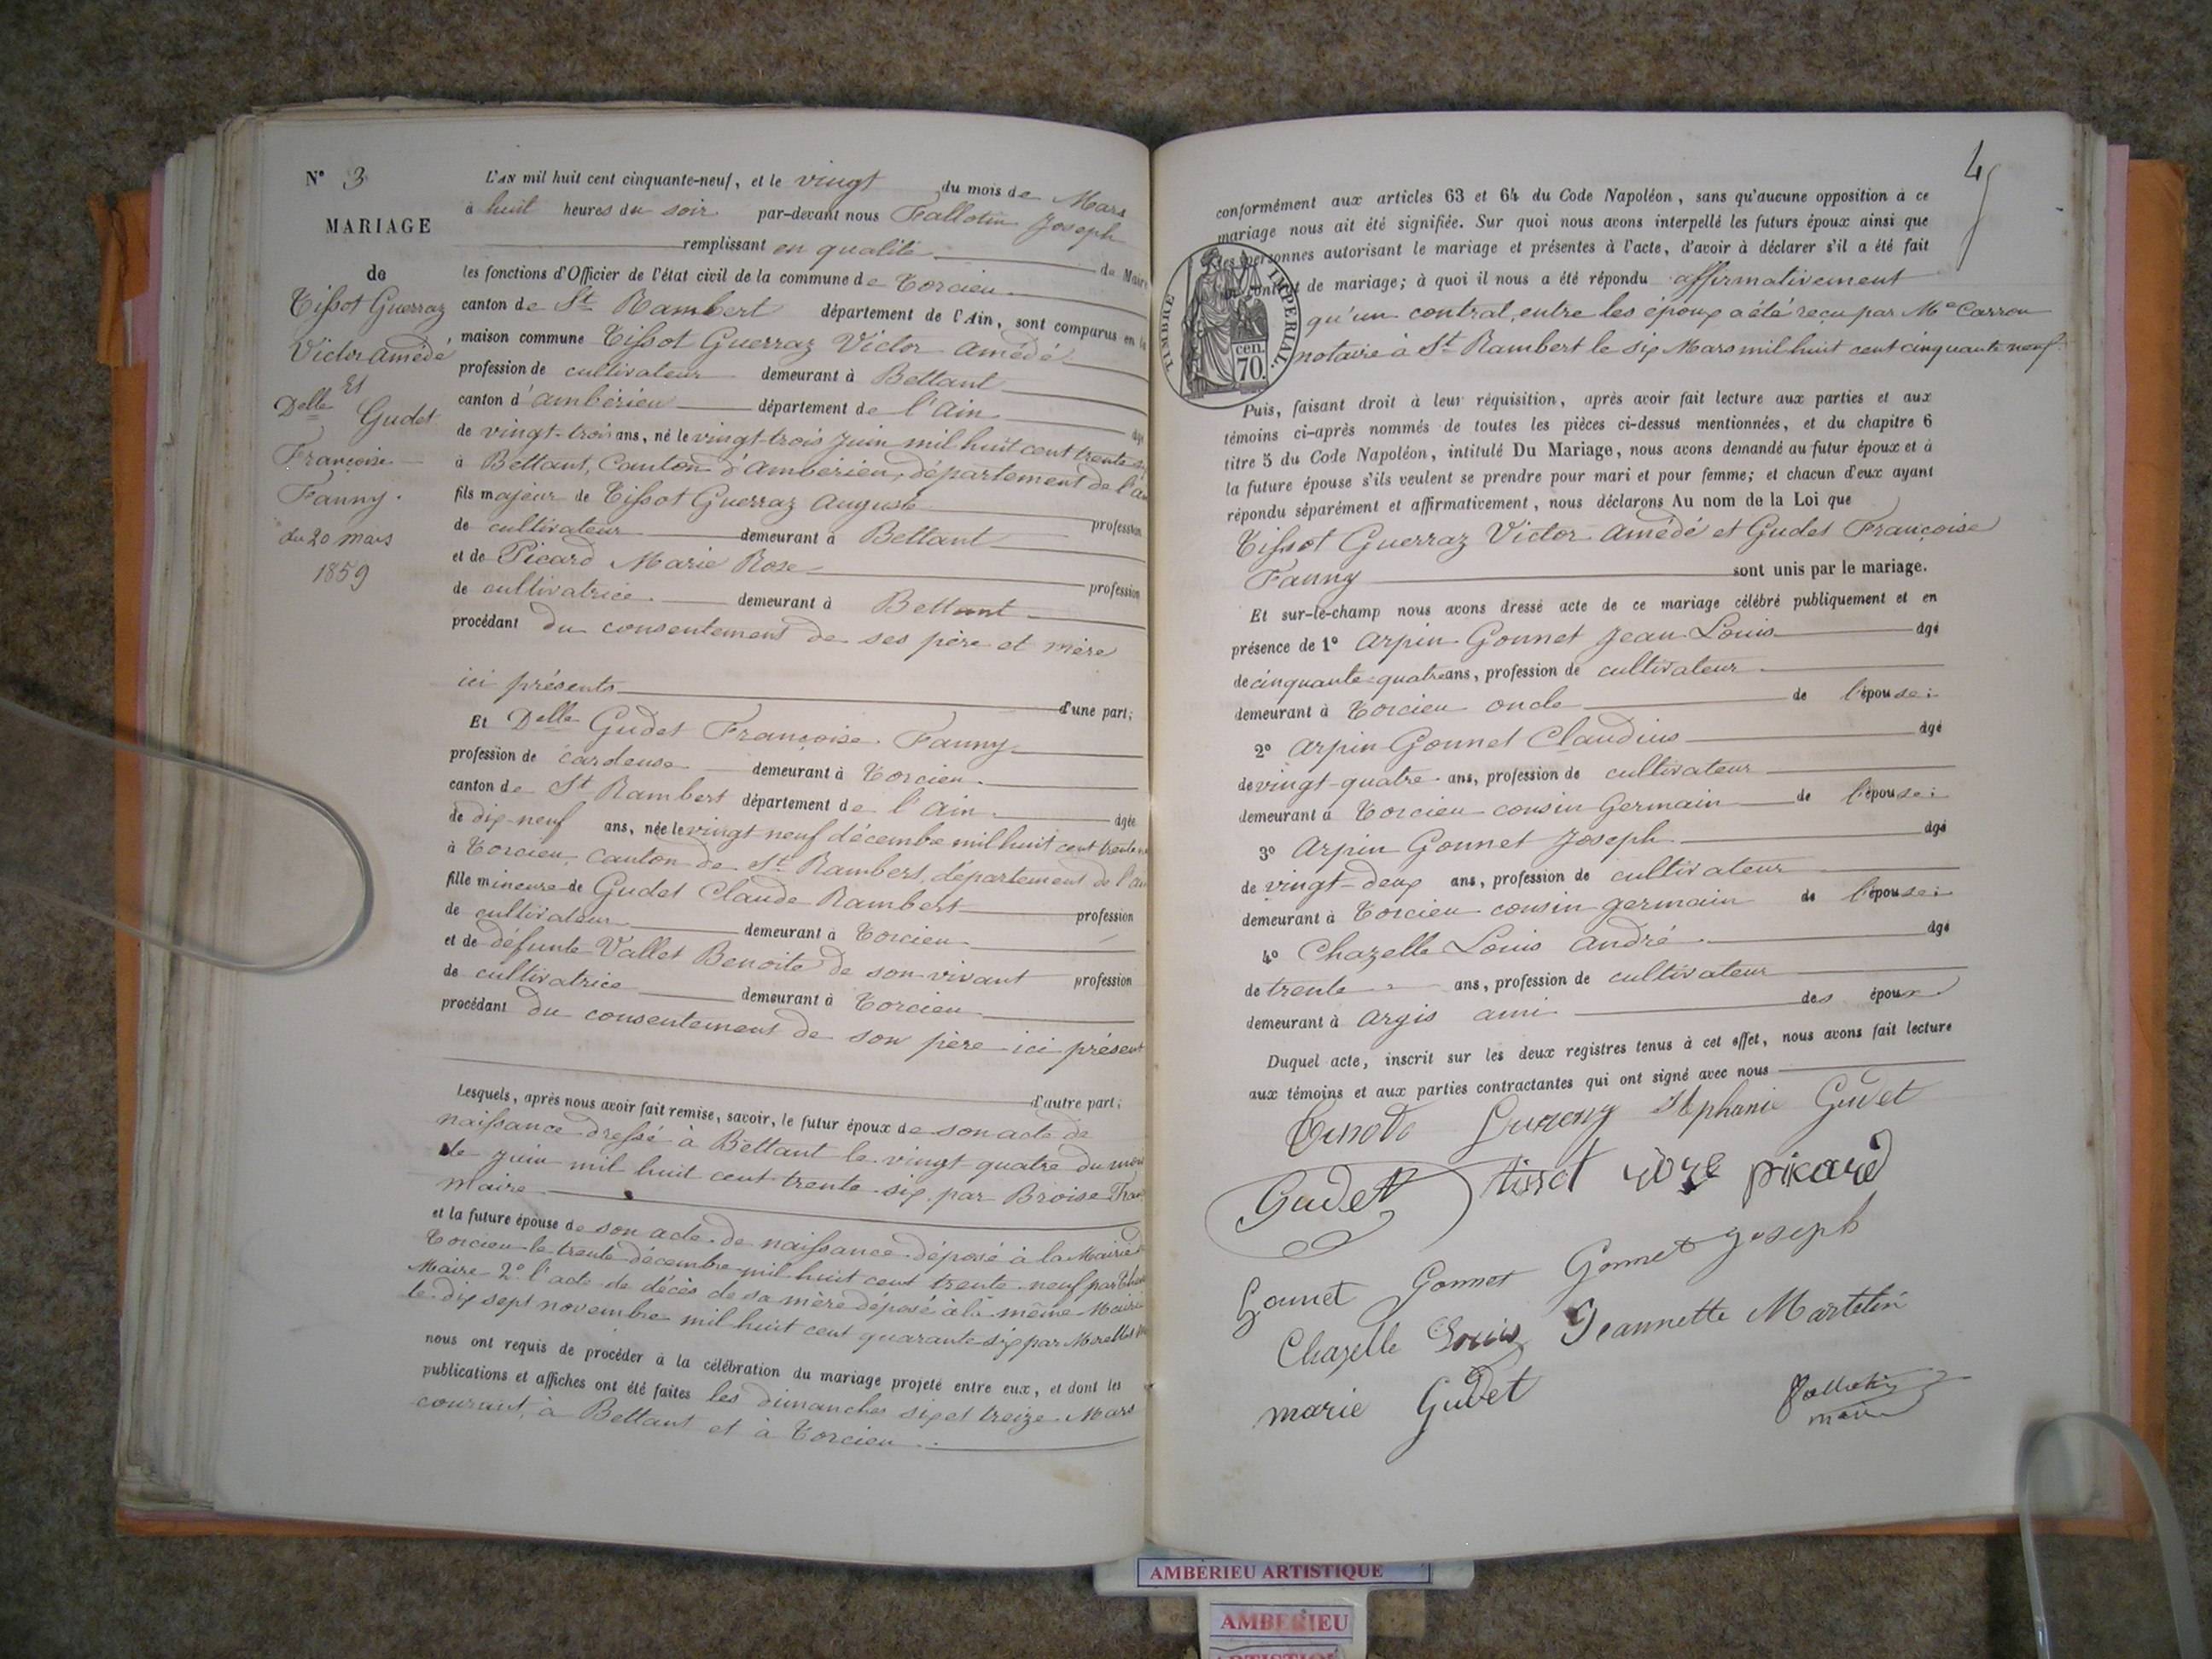 N° 3
MARIAGE
de
Tissot Guerraz
Victor amédé
Et
Delle Gudet
Françoise
Fanny.
du 20 mars
1859
L'AN mil huit cent cinquante-neuf, et le vingt du mois de Mars
à huit heures du soir par-devant nous Fallotin Joseph
remplissant en qualité de Maire
les fonctions d'Officier de l'état civil de la commune de Torcieu
canton de St Rambert département de l'Ain, sont comparus en la
maison commune Tissot Guerraz Victor amédé
profession de cultivateur demeurant à Bettant
canton d'ambérieu département de l'ain âgé
de vingt-trois ans, né le vingt-trois juin mil huit cent trente
à Bettant, Canton d'ambérieu, département de l'
fils majeur de Tissot Guerraz auguste profession
de cultivateur demeurant à Bettant
et de Picard Marie Rose profession
de cultivatrice demeurant à Bettant
procédant du consentement de ses père et mère
ici présents d'une part;
Et Delle Gudet Françoise Fanny
profession de cardeuse demeurant à Torcieu
canton de St Rambert département de l'ain âgée
de dix-neuf ans, née le vingt neuf décembre mil huit cent trente
à Torcieu, canton de St Rambert, département de l'
fille mineure de Gudet Claude Rambert profession
de cultivateur demeurant à Torcieu
et de défunte Vallet Benoite de son vivant profession
de cultivatrice demeurant à Torcieu
procédant du consentement de son père ici présent
d'autre part;
Lesquels, après nous avoir fait remise, savoir, le futur époux de son acte de
naissance dressé à Bettant le vingt quatre du mois
de juin mil huit cent trente six par Broise
maire
et la future épouse de son acte de naissance déposé à la Mairie
Torcieu le trente décembre mil huit cent trente neuf par
Maire 2° l'acte de décès de sa mère déposé à la même Mairie
le dix sept novembre mil huit cent quarante six par Morellet
nous ont requis de procéder à la célébration du mariage projeté entre eux, et dont les
publications et affiches ont été faites les dimanches six et treize Mars
courant, à Bettant et à Torcieu
4
conformément aux articles 63 et 64 du Code Napoléon, sans qu'aucune opposition à ce
mariage nous ait été signifiée. Sur quoi nous avons interpellé les futurs époux ainsi que
les personnes autorisant le mariage et présentes à l'acte, d'avoir à déclarer s'il a été fait
un contrat de mariage; à quoi il nous a été répondu affirmativement
qu'un contrat, entre les époux a été reçu par Me Carron
notaire à St Rambert le six Mars mil huit cent cinquante neuf
TIMBRE IMPÉRIAL
70 cen.
Puis, faisant droit à leur réquisition, après avoir fait lecture aux parties et aux
témoins ci-après nommés de toutes les pièces ci-dessus mentionnées, et du chapitre 6
titre 5 du Code Napoléon, intitulé Du Mariage, nous avons demandé au futur époux et à
la future épouse s'ils veulent se prendre pour mari et pour femme; et chacun d'eux ayant
répondu séparément et affirmativement, nous déclarons Au nom de la Loi que
Tissot Guerraz Victor amédé et Gudet Françoise
Fanny sont unis par le mariage.
Et sur-le-champ nous avons dressé acte de ce mariage célébré publiquement et en
présence de 1° arpin Gonnet Jean Louis âgé
de cinquante-quatre ans, profession de cultivateur
demeurant à Torcieu oncle de l'épouse;
2° arpin Gonnet Claudius âgé
de vingt quatre ans, profession de cultivateur
demeurant à Torcieu cousin Germain de l'épouse;
3° arpin Gonnet Joseph âgé
de vingt-deux ans, profession de cultivateur
demeurant à Torcieu cousin germain de l'épouse;
4° Chazelle Louis andré âgé
de trente ans, profession de cultivateur
demeurant à argis ami des époux
Duquel acte, inscrit sur les deux registres tenus à cet effet, nous avons fait lecture
aux témoins et aux parties contractantes qui ont signé avec nous
Stéphanie Gudet
Gudet tissot rose picard
Gonnet Gonnet Gonnet joseph
Chazelle Louis Jeannette Martelin
marie Gudet
Fallotin
maire
AMBERIEU ARTISTIQUE
AMBERIEU
ARTISTIQUE